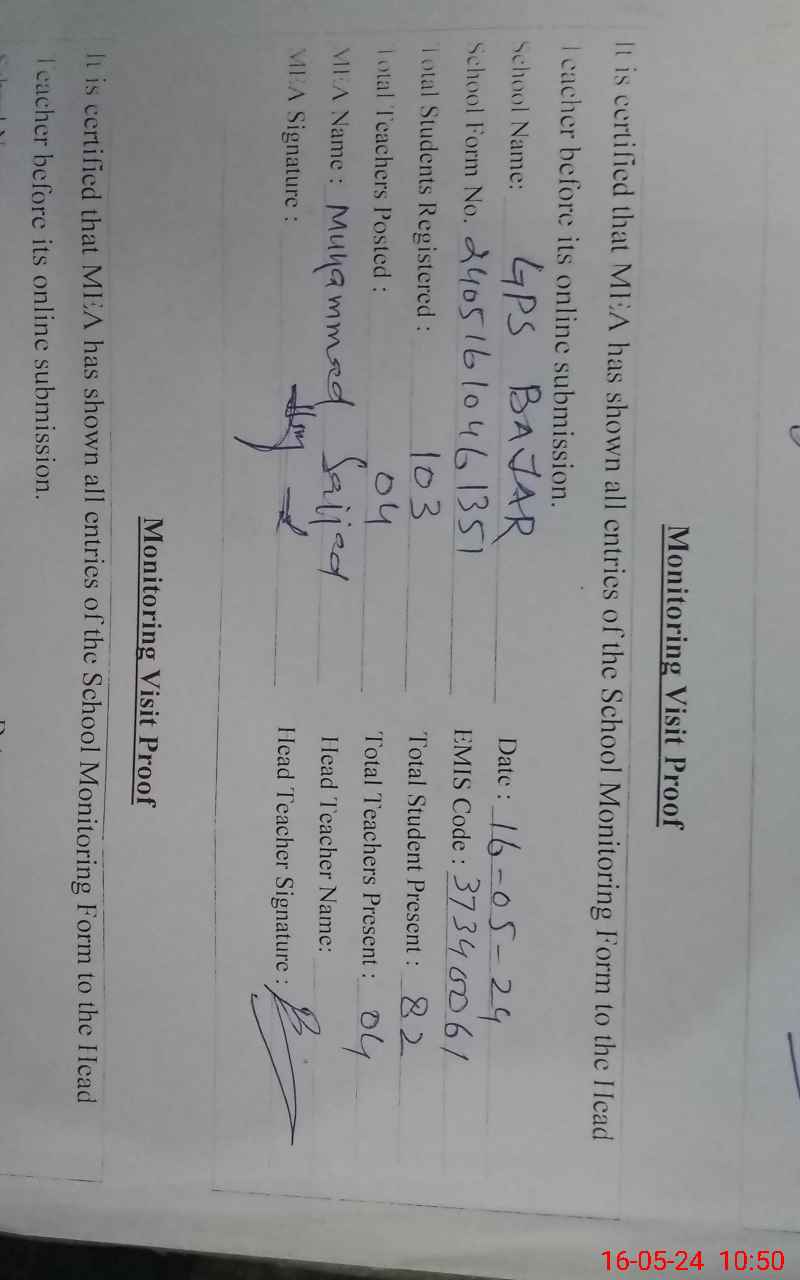 Monitoring Visit Proof
It is certified that MEA has shown all entries of the School Monitoring Form to the Head
Teacher before its online submission.
School Name: GPS BAJAR Date : 16-05-24
School Form No. 24051610461351 EMIS Code : 37340061
Total Students Registered : 103 Total Student Present : 82
Total Teachers Posted : 04 Total Teachers Present : 04
MEA Name : Muhammad Sajjad Head Teacher Name:
MEA Signature : Head Teacher Signature :
Monitoring Visit Proof
It is certified that MEA has shown all entries of the School Monitoring Form to the Head
Teacher before its online submission.
16-05-24 10:50